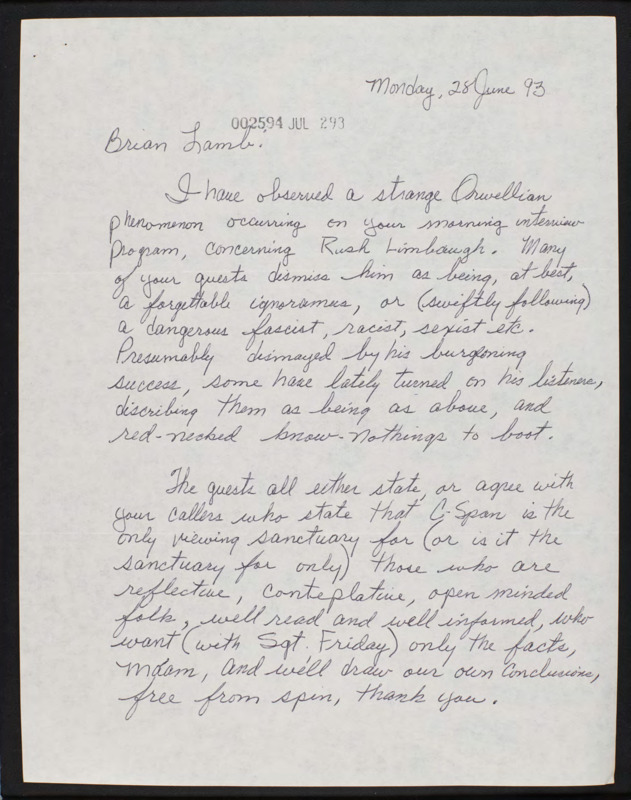 Monday, 28 June 93
002594 JUL 293
Brian Lamb:
I have observed a strange Orwellian
phenomenon occurring on your morning interview
program, concerning Rush Limbaugh. Many
of your guests dismiss him as being, at best,
a forgettable ignoramus, or (swiftly following)
a dangerous fascist, racist, sexist etc.
Presumably dismayed by his burgeoning
success, some have lately turned on his listeners,
discribing them as being as above, and
red-necked know-nothings to boot.
The guests all either state, or agree with
your callers who state that C-Span is the
only viewing sanctuary for (or is it the
sanctuary for only) those who are
reflective, conteplative, open minded
folk, well read and well informed, who
want (with Sgt. Friday) only the facts,
Mdam, and we'll draw our own conclusions,
free from spin, thank you.